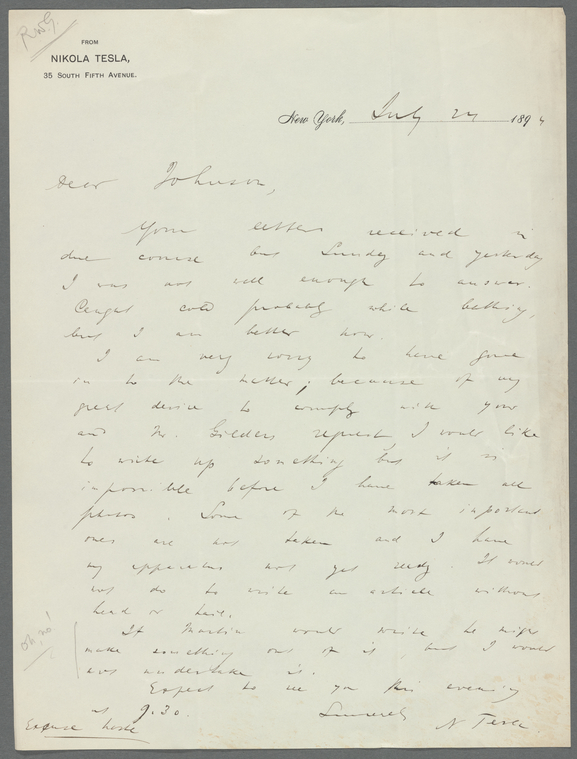 R.W.G.
FROM
NIKOLA TESLA,
35 SOUTH FIFTH AVENUE.
New York, July 24 1894
Dear Johnson,
Your letters received in
due course but Sunday and yesterday
I was not well enough to answer.
Caught cold probably while bathing,
but I am better now.
I am very sorry to have gone
in to the matter; because of my
great desire to comply with your
and Mr. Gilders request, I would like
to write up something but it is
impossible before I have taken all
photos. Some of the most important
ones are not taken and I have
my apparatus not yet ready. It would
not do to write an article without
head or tail.
If Martin would write he might
make something out of it, but I would
not undertake it.
oh, no!
Expect to see you this evening
at 9.30.
Sincerely
N Tesla
Excuse haste